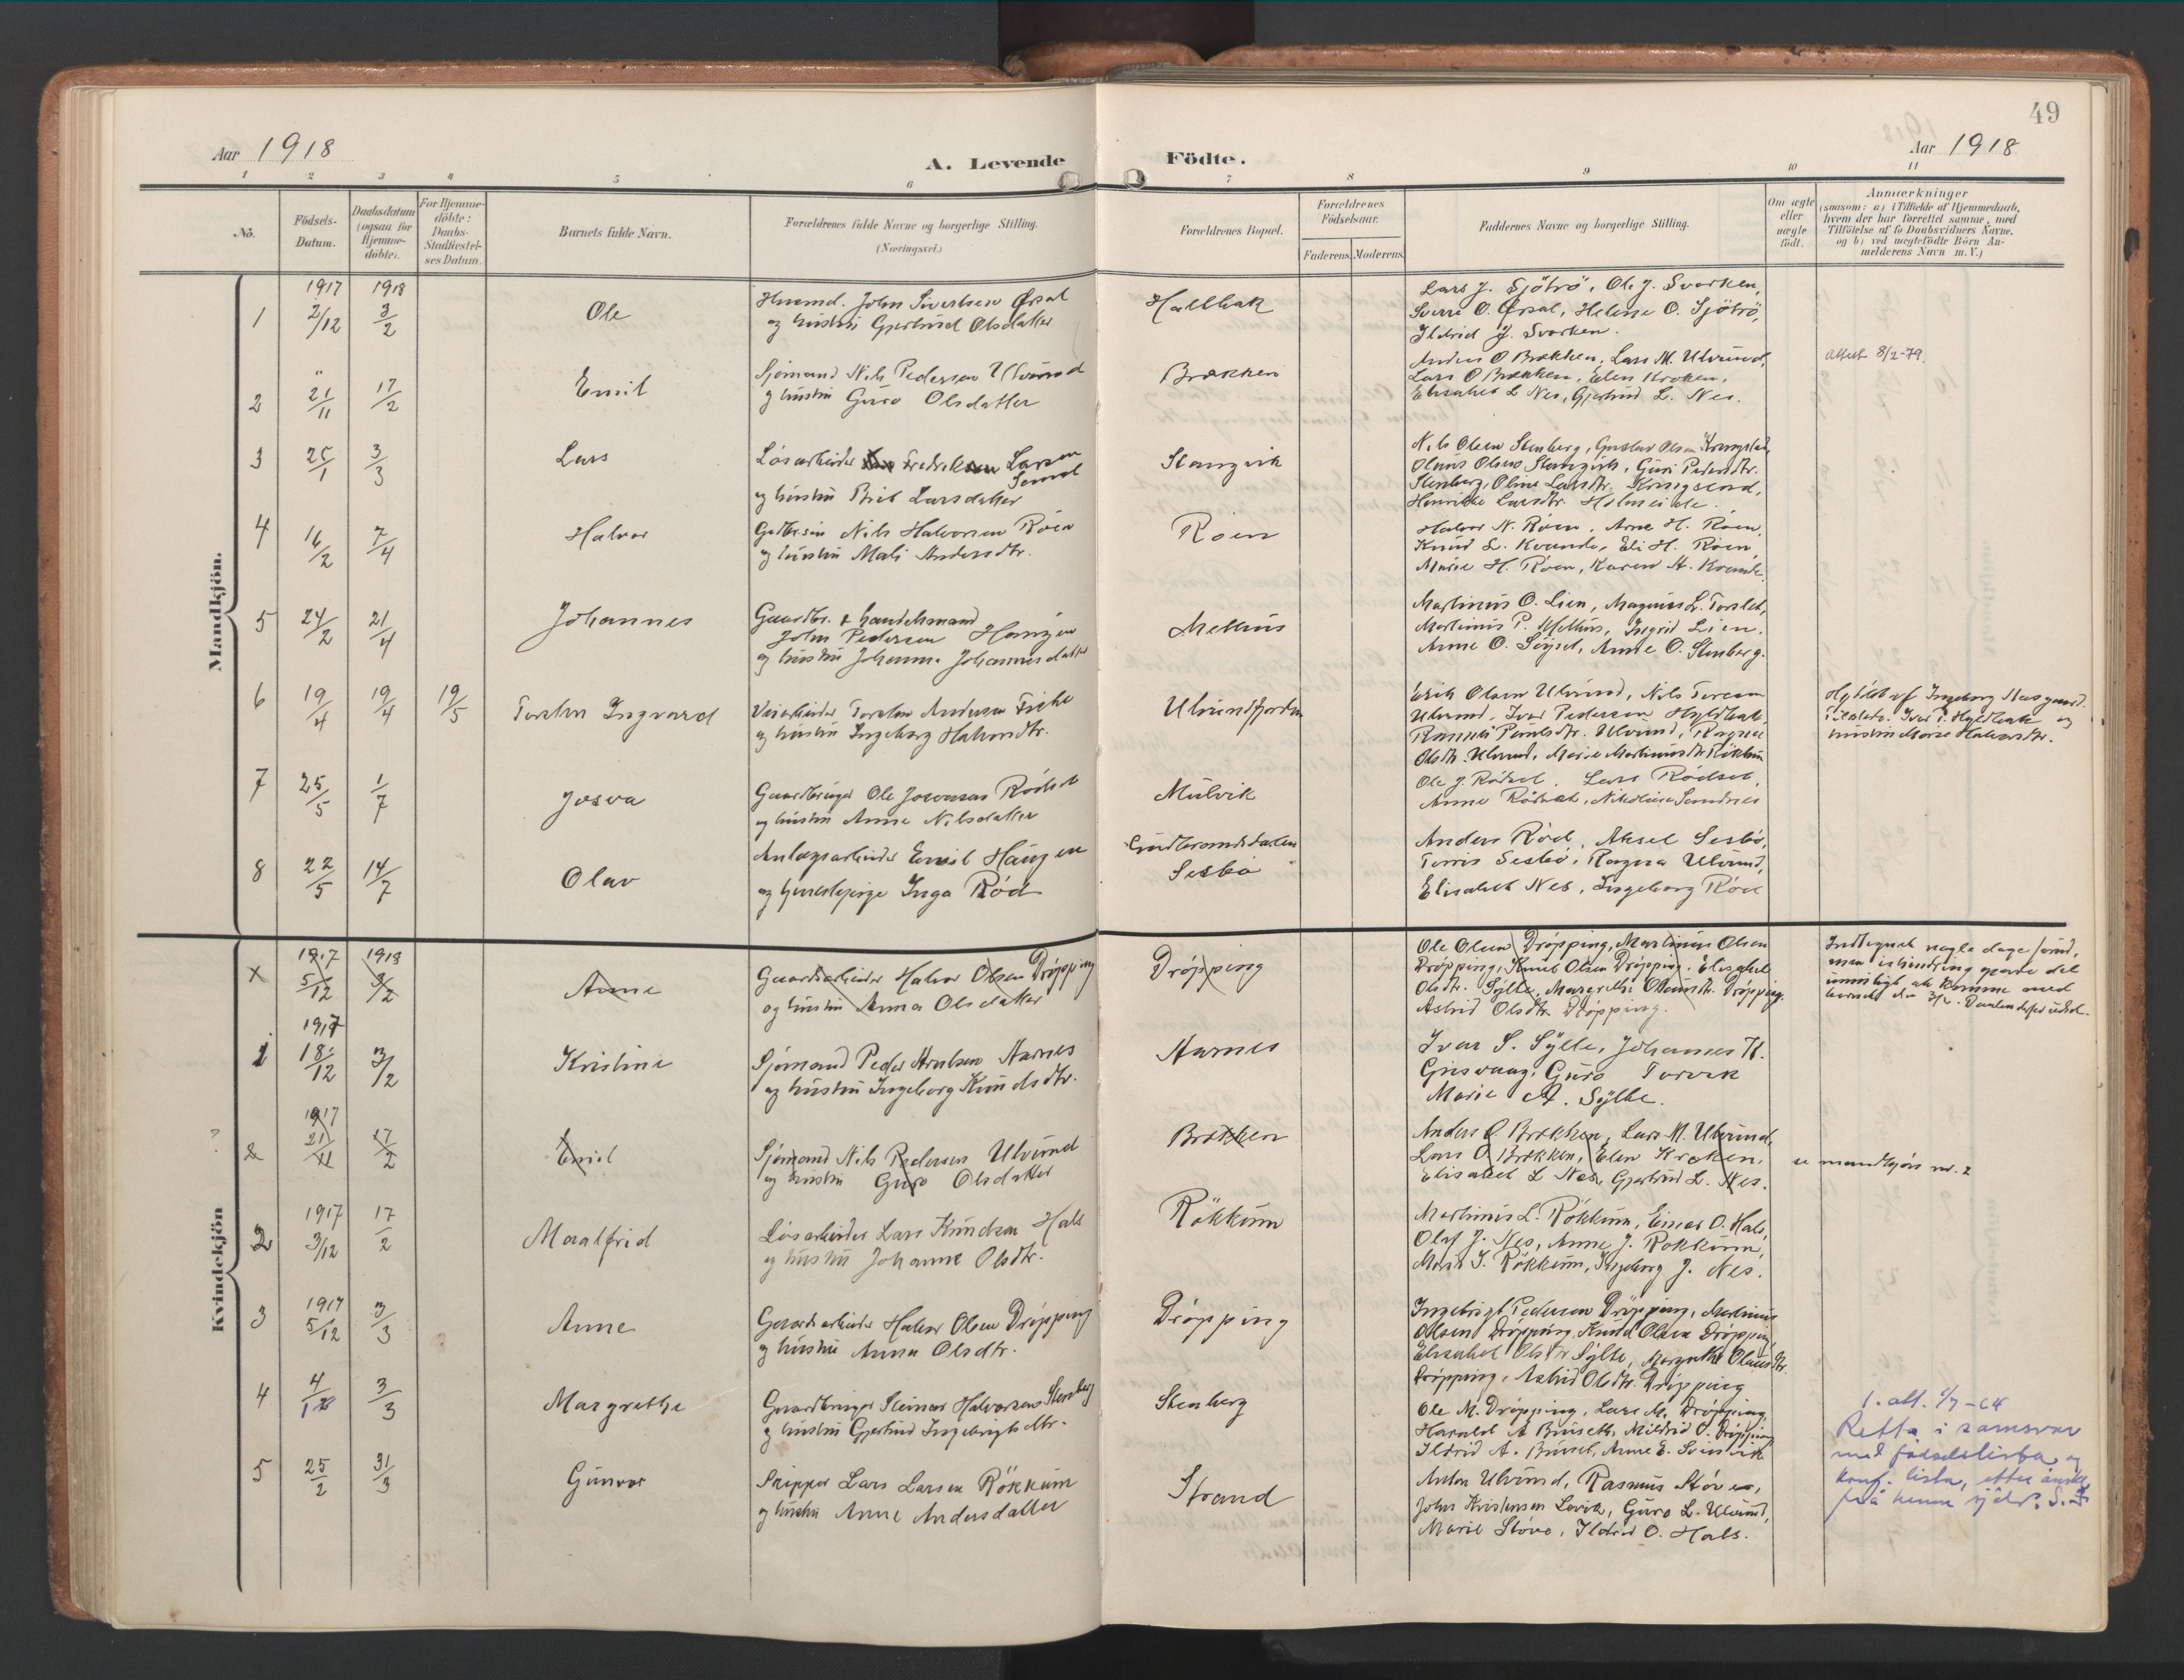 49
Aar 1918
A. Levende Födte.
Aar 1918
1 2 3 4 5 6 7 8 9 10 11
No.
Födsels-Datum.
Daabsdatum (ogsaa for Hjemme-döbte).
For Hjemme-döbte: Daabs-Stadfæstel-ses Datum.
Barnets fulde Navn.
Forældrenes fulde Navne og borgerlige Stilling.
(Næringsvei.)
Forældrenes Bopæl.
Forældrenes Födselsaar.
Faderens. Moderens.
Faddernes Navne og borgerlige Stilling.
Om ægte eller uægte födt.
Anmærkninger
(saasom: a) i Tilfælde af Hjemmedaab,
hvem der har forrettet samme, med
Tilföielse af to Daabsvidners Navne,
og b) ved uægtefödte Börn An-
melderens Navn m. V.)
Mandkjön.
1 1917 2/12 1918 3/2 Ole
Husmd. John Sivertsen Ørsal
og hustru Gjertrud Olsdatter
Hallbak
Lars J. Sjötrö, Ole J. Svorken,
Sverre O. Ørsal, Helene O. Sjötrö,
Ildrid J. Svorken.
2 " 21/11 17/2 Emil
Sjømand Nils Pedersen Ulvund
og hustru Guro Olsdatter
Brækken
Anders O Brækken, Lars M. Ulvund,
Lars O Brækken, Elen Kroken,
Elisabet L Nes, Gjertrud L. Nes.
Attest 8/2-79.
3 25/1 3/3 Lars
Løsarbeider Fredrik Larsen
og hustru Brit Larsdatter
Stangvik
Nils Olsen Stenberg, Gustav Olsen
Olaus Olsen Stangvik, Guri Pedersdtr.
Stenberg, Oline Larsdtr.
Henrikke Larsdtr.
4 16/2 7/4 Halvor
Gdbr.søn Nils Halvorsen Røen
og hustru Mali Andersdtr.
Røen
Halvor N. Røen, Arne H. Røen,
Knud L. Kvande, Eli H. Røen,
Marie H. Røen, Karen A. Kvande.
5 24/2 21/4 Johannes
Gaardbr. & handelsmand
John Pedersen Haugen
og hustru Johanna Johannesdatter
Melhus
Martinus O. Lien, Magnus L. Torslet,
Martinus P. Melhus, Ingrid Lien,
Anne O. Søyset, Anne O. Stenberg.
6 19/4 19/4 19/5 Torsten Ingvard
Veiarbeider Torsten Andersen Fiske
og hustru Ingeborg Halvorsdtr.
Ulvundfjorden
Erik Olsen Ulvund, Nils Toresen
Ulvund, Ivar Pedersen Hyldbak,
Rannei Paulsdtr. Ulvund, Ragna
Olsdtr. Ulvund, Marie Martinusdtr Røkkum
Hj.døbt af Ingeborg Aasgaard.
Tilstede: Ivar P. Hyldbak og
hustru Marie Halvorsdtr.
7 25/5 1/7 Josva
Gaardbruger Ole Josvasen Rødset
og hustru Anne Nilsdatter
Mulvik
Ole J. Rødset, Lars Rødset,
Anne Rødset, Nikoline Sandnes
8 22/5 14/7 Olav
Anlægsarbeider Emil Haugen
og Inga Rød
Gudbrandsdalen
Sesbø
Anders Rød, Aksel Sesbø,
Torris Sesbø, Ragna Ulvund,
Elisabet Nes, Ingeborg Rød
Kvindekjön
x 1917 5/12 1918 3/2 Anne
Gaardsarbeider Halvor Olsen Dröpping
og hustru Anna Olsdatter
Dröpping
Ole Olsen Dröpping, Martinus Olsen
Dröpping, Knut Olsen Dröpping, Elisabet
Olsdtr. Sylte, Margrethe Olausdtr. Dröpping.
Astrid Olsdtr. Dröpping.
Indtegnet nogle dage forud,
men ishindring gjorde det
umuligt at komme med
barnet den 3/2. Daaben derfor udsat.
1 1917 18/12 3/2 Kristine
Sjømand Peder Arntsen Aarnes
og hustru Ingeborg Knudsdtr.
Aarnes
Ivar S. Sylte, Johannes H.
Grisvaag, Guro Torvik
Marie A. Sylte.
2 1917 21/11 17/2 Emil
Sjømand Nils Pedersen Ulvund
og hustru Guro Olsdatter
Brækken
Anders O Brækken, Lars M. Ulvund,
Lars O Brækken, Elen Kroken,
Elisabet L Nes, Gjertrud L. Nes.
se mandkjøn nr. 2
2 1917 3/12 17/2 Maalfrid
Løsarbeider Lars Knudsen Hals
og hustru Johanne Olsdtr.
Rökkum
Martinus L. Rökkum, Einar O. Hals,
Olaf J. Nes, Anne J. Rökkum,
Marit I. Rökkum, Ingeborg J. Nes.
3 1917 5/12 3/3 Anne
Gaardsarbeider Halvor Olsen Dröpping
og hustru Anna Olsdtr.
Dröpping
Ingebrigt Pedersen Dröpping, Martinus
Olsen Dröpping, Knud Olsen Dröpping,
Elisabet Olsdtr Sylte, Margrethe Olausdtr.
Dröpping, Astrid Olsdtr. Dröpping
4 4/1 3/3 Margrethe
Gaardbruger Steinar Halvorsen Stenberg
og hustru Gjertrud Ingebrigtsdtr.
Stenberg
Ole M. Dröpping, Lars M. Dröpping,
Harald A Bruseth, Mildrid O. Dröpping
Ildrid A. Bruset, Anne E. Svinvik
1. att. 1/7-64
Retta i samsvar
med fødselslista og
konf. lista, etter ønskje
frå henne sjølv. S.F.
5 25/2 31/3 Gunvor
Skipper Lars Larsen Rökkum
og hustru Anne Andersdatter
Strand
Anton Ulvund, Rasmus Støver,
John Kristensen Løvik, Guro L. Ulvund,
Marit Støve, Ildrid O. Hals.